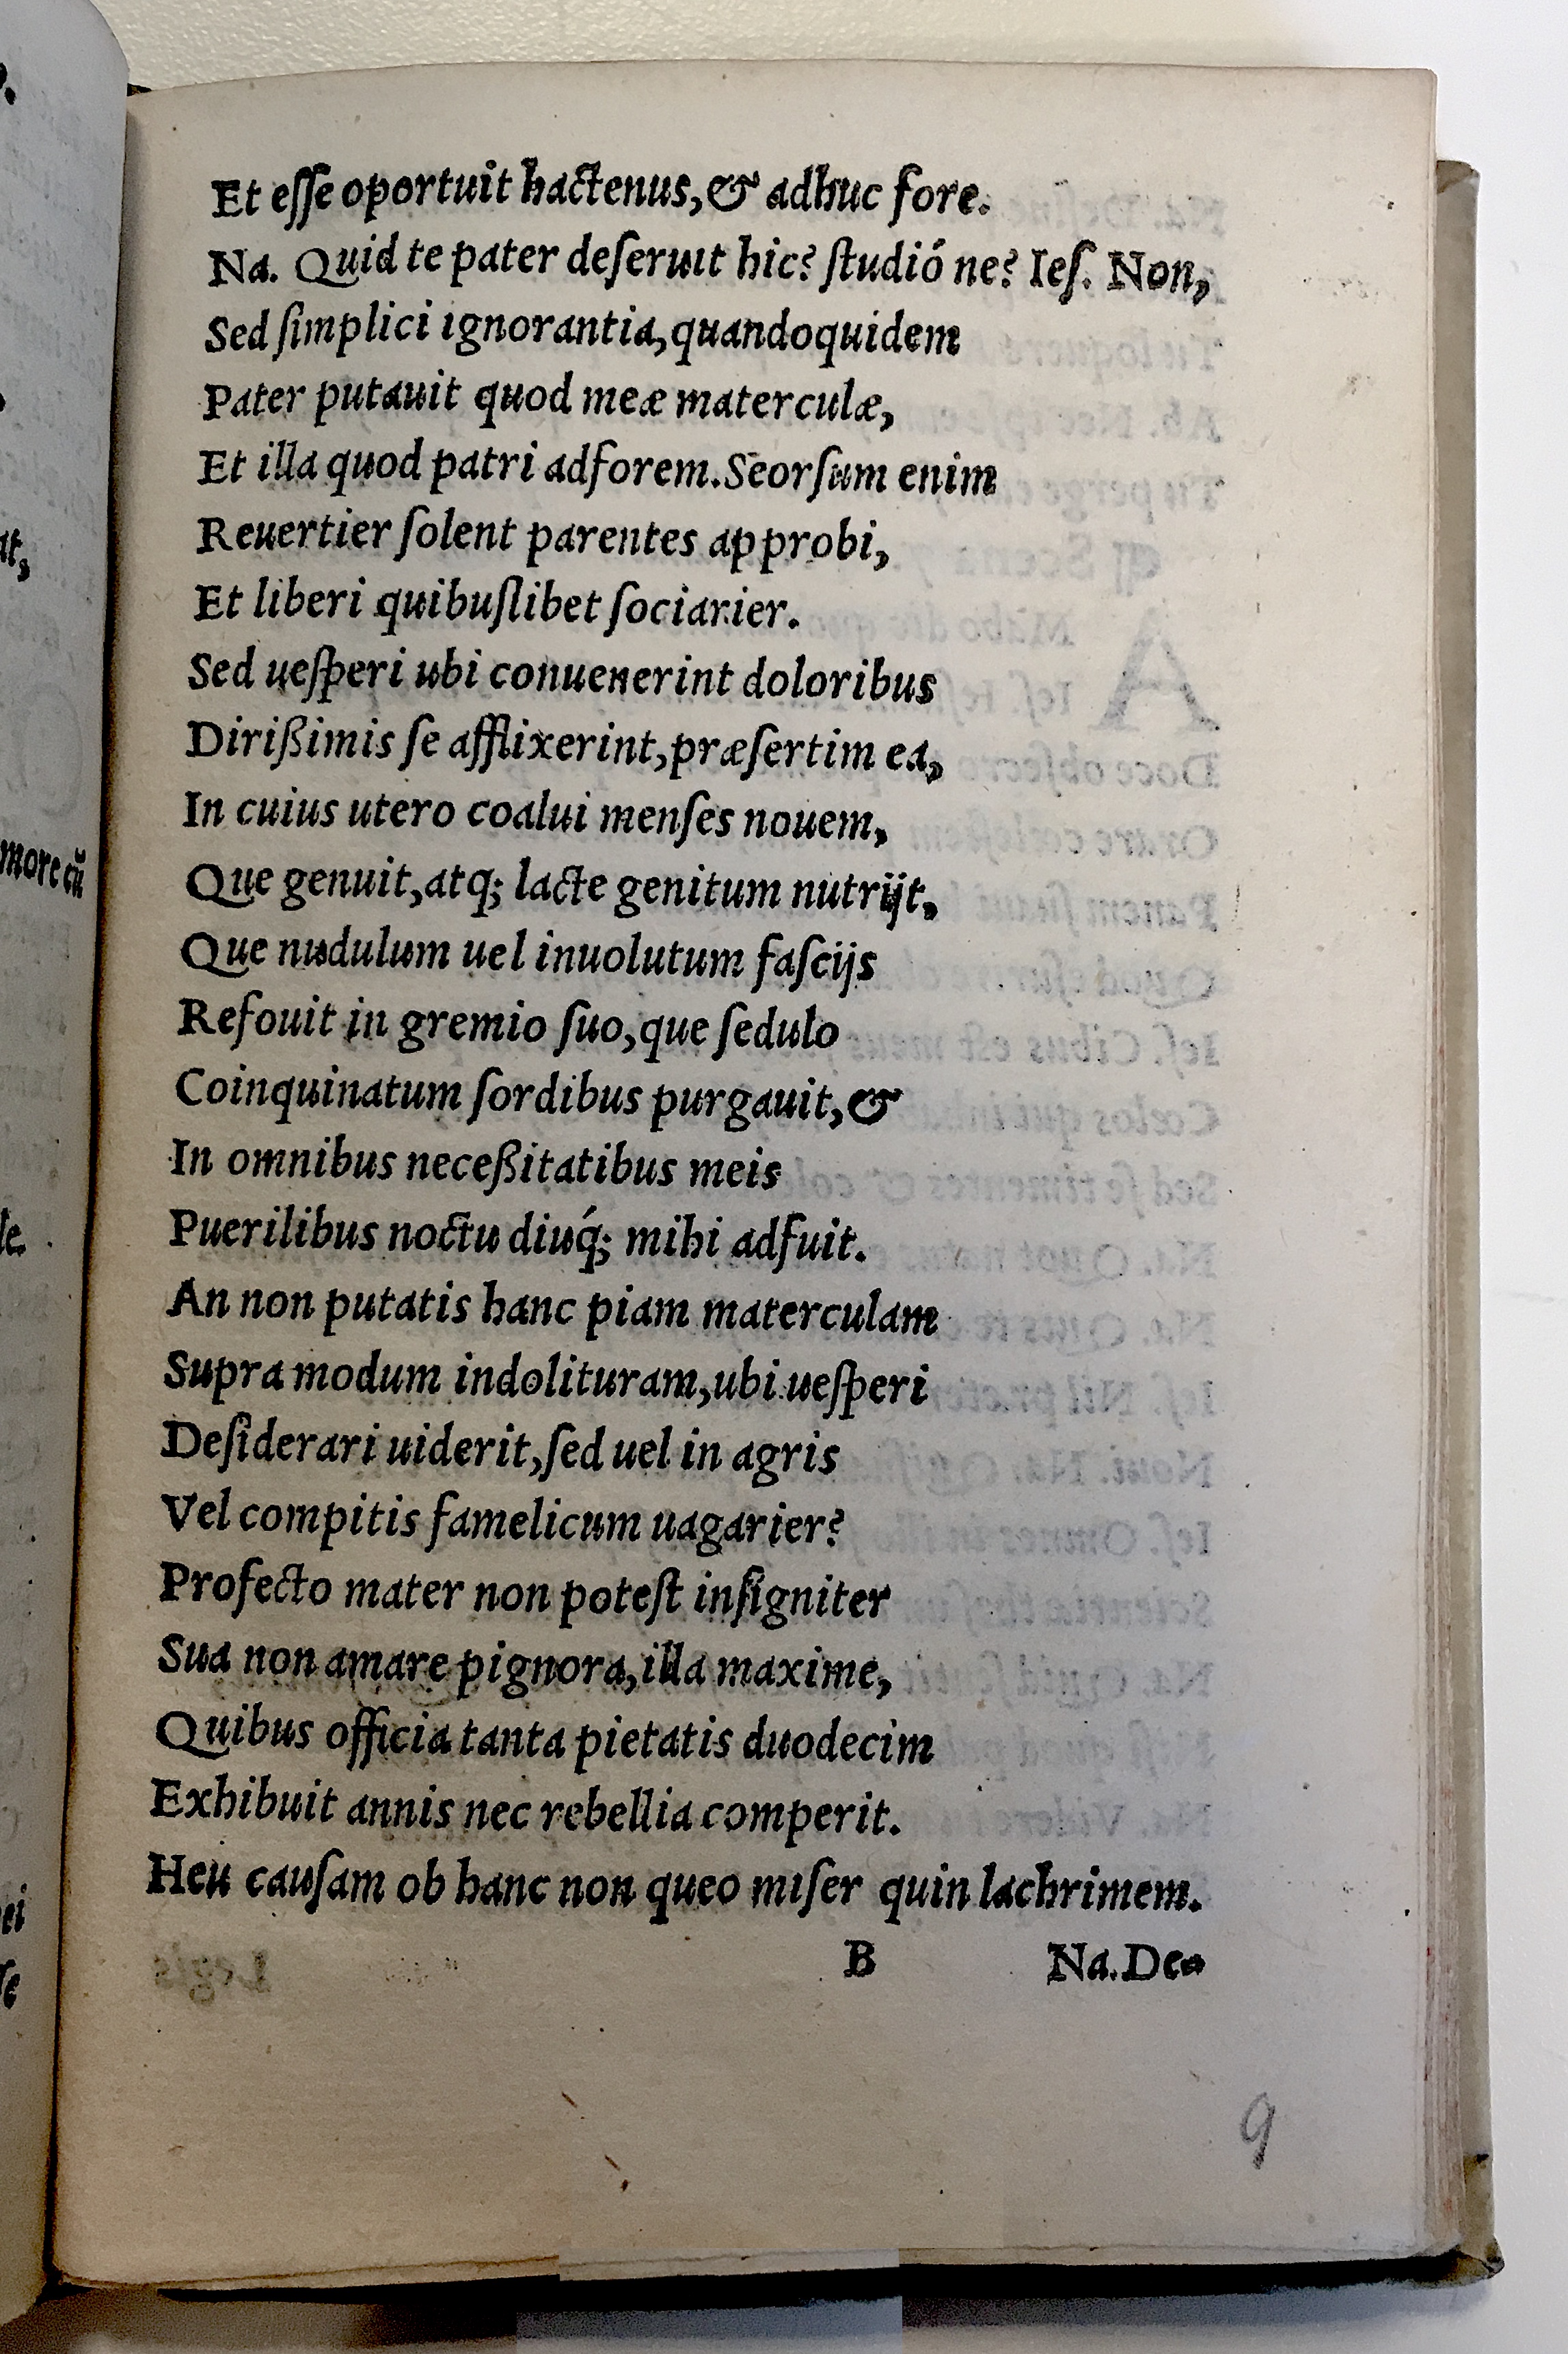 Et eſſe oportuit hactenus,& adhuc fore.
Na. Quid te pater deſeruit hic? ſtudió ne? Ieſ. Non,
Sed ſimplici ignorantia,quandoquidem
Pater putauit quod meæ materculæ,
Et illa quod patri adforem.Seorſum enim
Reuertier ſolent parentes approbi,
Et liberi quibuſlibet ſociarier.
Sed ueſperi ubi conuenerint doloribus
Dirißimis ſe afflixerint,præſertim ea,
In cuius utero coalui menſes nouem,
Que genuit,atq; lacte genitum nutrijt,
Que nudulum uel inuolutum faſcijs
Refouit in gremio ſuo,que ſedulo
Coinquinatum ſordibus purgauit,&
In omnibus neceßitatibus meis
Puerilibus noctu diuq́; mihi adfuit.
An non putatis hanc piam materculam
Supra modum indolituram,ubi ueſperi
Deſiderari uiderit,ſed uel in agris
Vel compitis famelicum uagarier?
Profecto mater non poteſt inſigniter
Sua non amare pignora,illa maxime,
Quibus officia tanta pietatis duodecim
Exhibuit annis nec rebellia comperit.
Heu cauſam ob hanc non queo miſer quin lachrimem.
B Na.De-
9